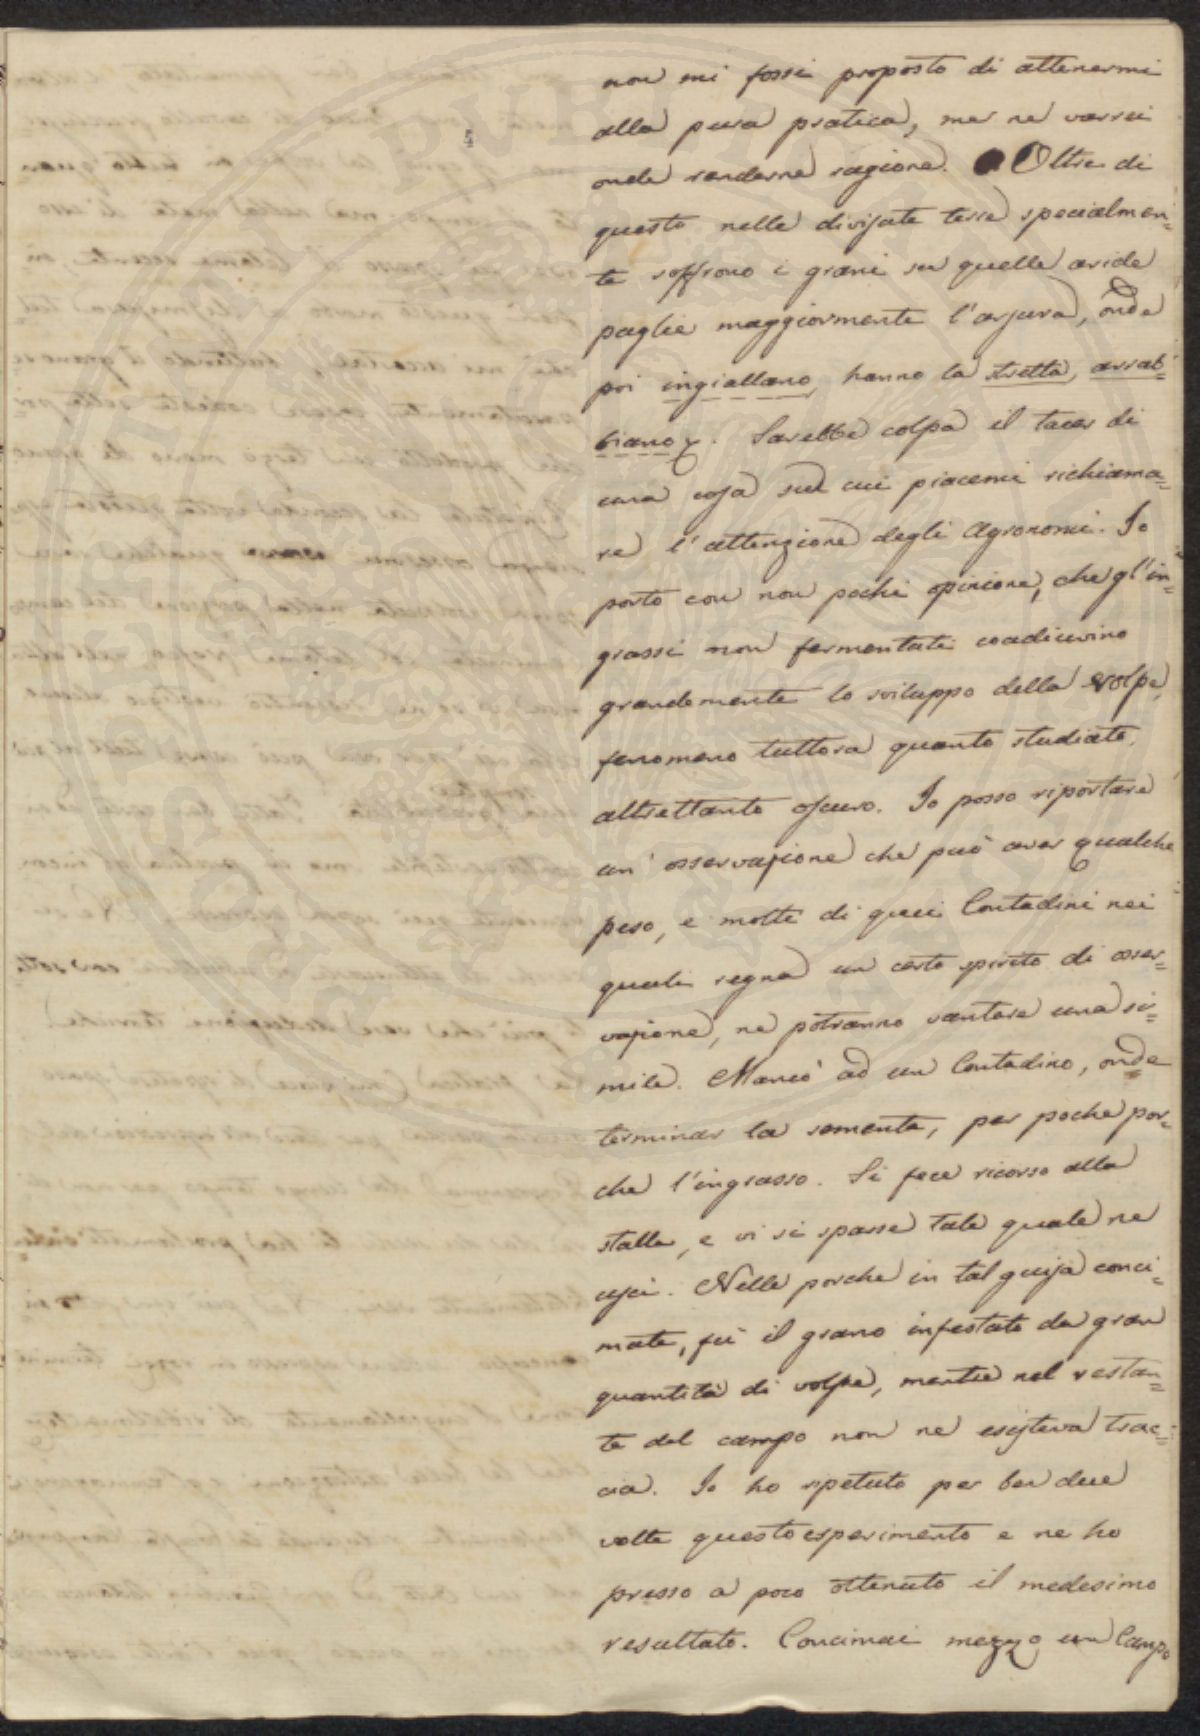 non mi fossi proposto di attenermi
alla pura pratica, me ne varrei
onde renderne ragione. Oltre di
questo nelle divisate terre specialmen=
te soffrono i grani su quelle aride
paglie maggiormente l'arsura, onde
poi ingiallano, hanno la stretta, arrab=
biano &. Sarebbe colpa il tacer di
una cosa sul cui piacemi richiama=
re l'attenzione degli Agronomi. Io
porto con non pochi opinione, che gl'in=
grassi non fermentati coadiuvino
grandemente lo sviluppo della volpe,
fenomeno tuttora quanto studiato,
altrettanto oscuro. Io posso riportare
un' osservazione che può aver qualche
peso, e molti di quei Contadini nei
quali regna un certo spirito di osser=
vazione, ne potranno vantare una si=
mile. Mancò ad un Contadino, onde
terminar la sementa, per poche por=
che l'ingrasso. Si fece ricorso alla
stalla, e vi si sparse tale quale ne
uscì. Nelle porche in tal guisa conci=
mate, fù il grano infestato da gran
quantità di volpe, mentre nel restan=
te del campo non ne esisteva trac=
cia. Io ho ripetuto per ben due
volte questo esperimento e ne ho
presso a poco ottenuto il medesimo
resultato. Concimai mezzo un Campo